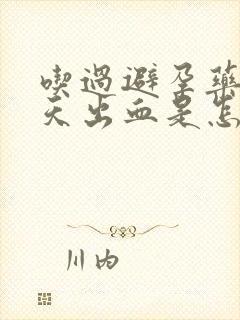 喫過避孕藥
天出血是怎
川内